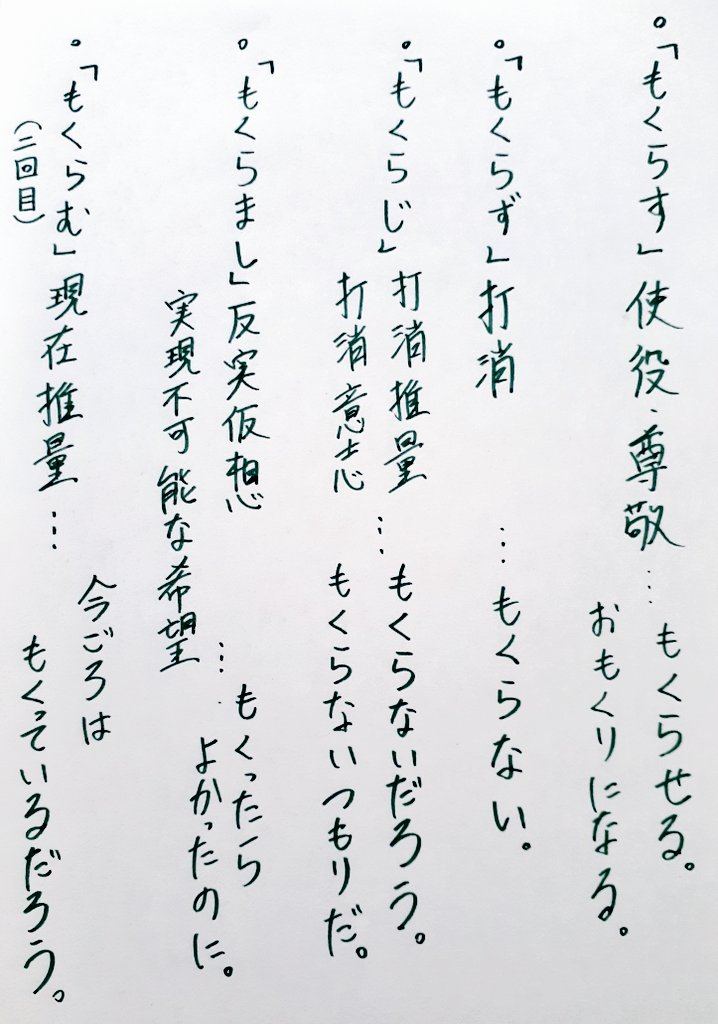 。「もくらす」使役・尊敬…もくらせる。
おもくりになる。
。「もくらず」打消…もくらない。
。「もくらじ」打消推量…もくらないだろう。
打消意志 もくらないつもりだ。
。「もくらまし」反実仮想…もくったら
実現不可能な希望 よかったのに。
。「もくらむ」現在推量…今ごろは
(二回目) もくっているだろう。